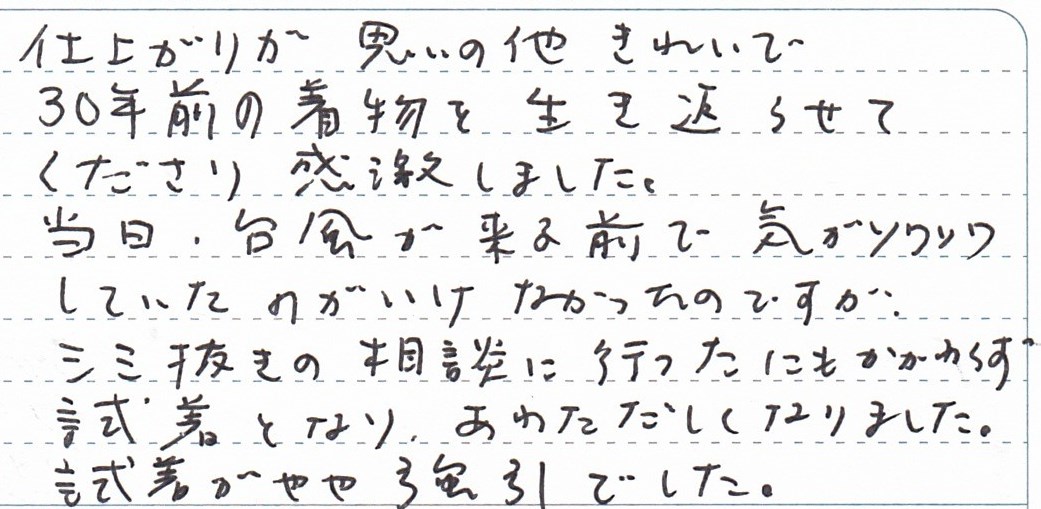 仕上がりが 思いの他 きれいで
30年前の着物を 生き返らせて
くださり 感激しました。
当日、台風が来る前で 気がソワソワ
していたのがいけなかったのですが、
シミ抜きの相談に行ったにもかかわらず
試着となり、あわただしくなりました。
試着がやや強引でした。